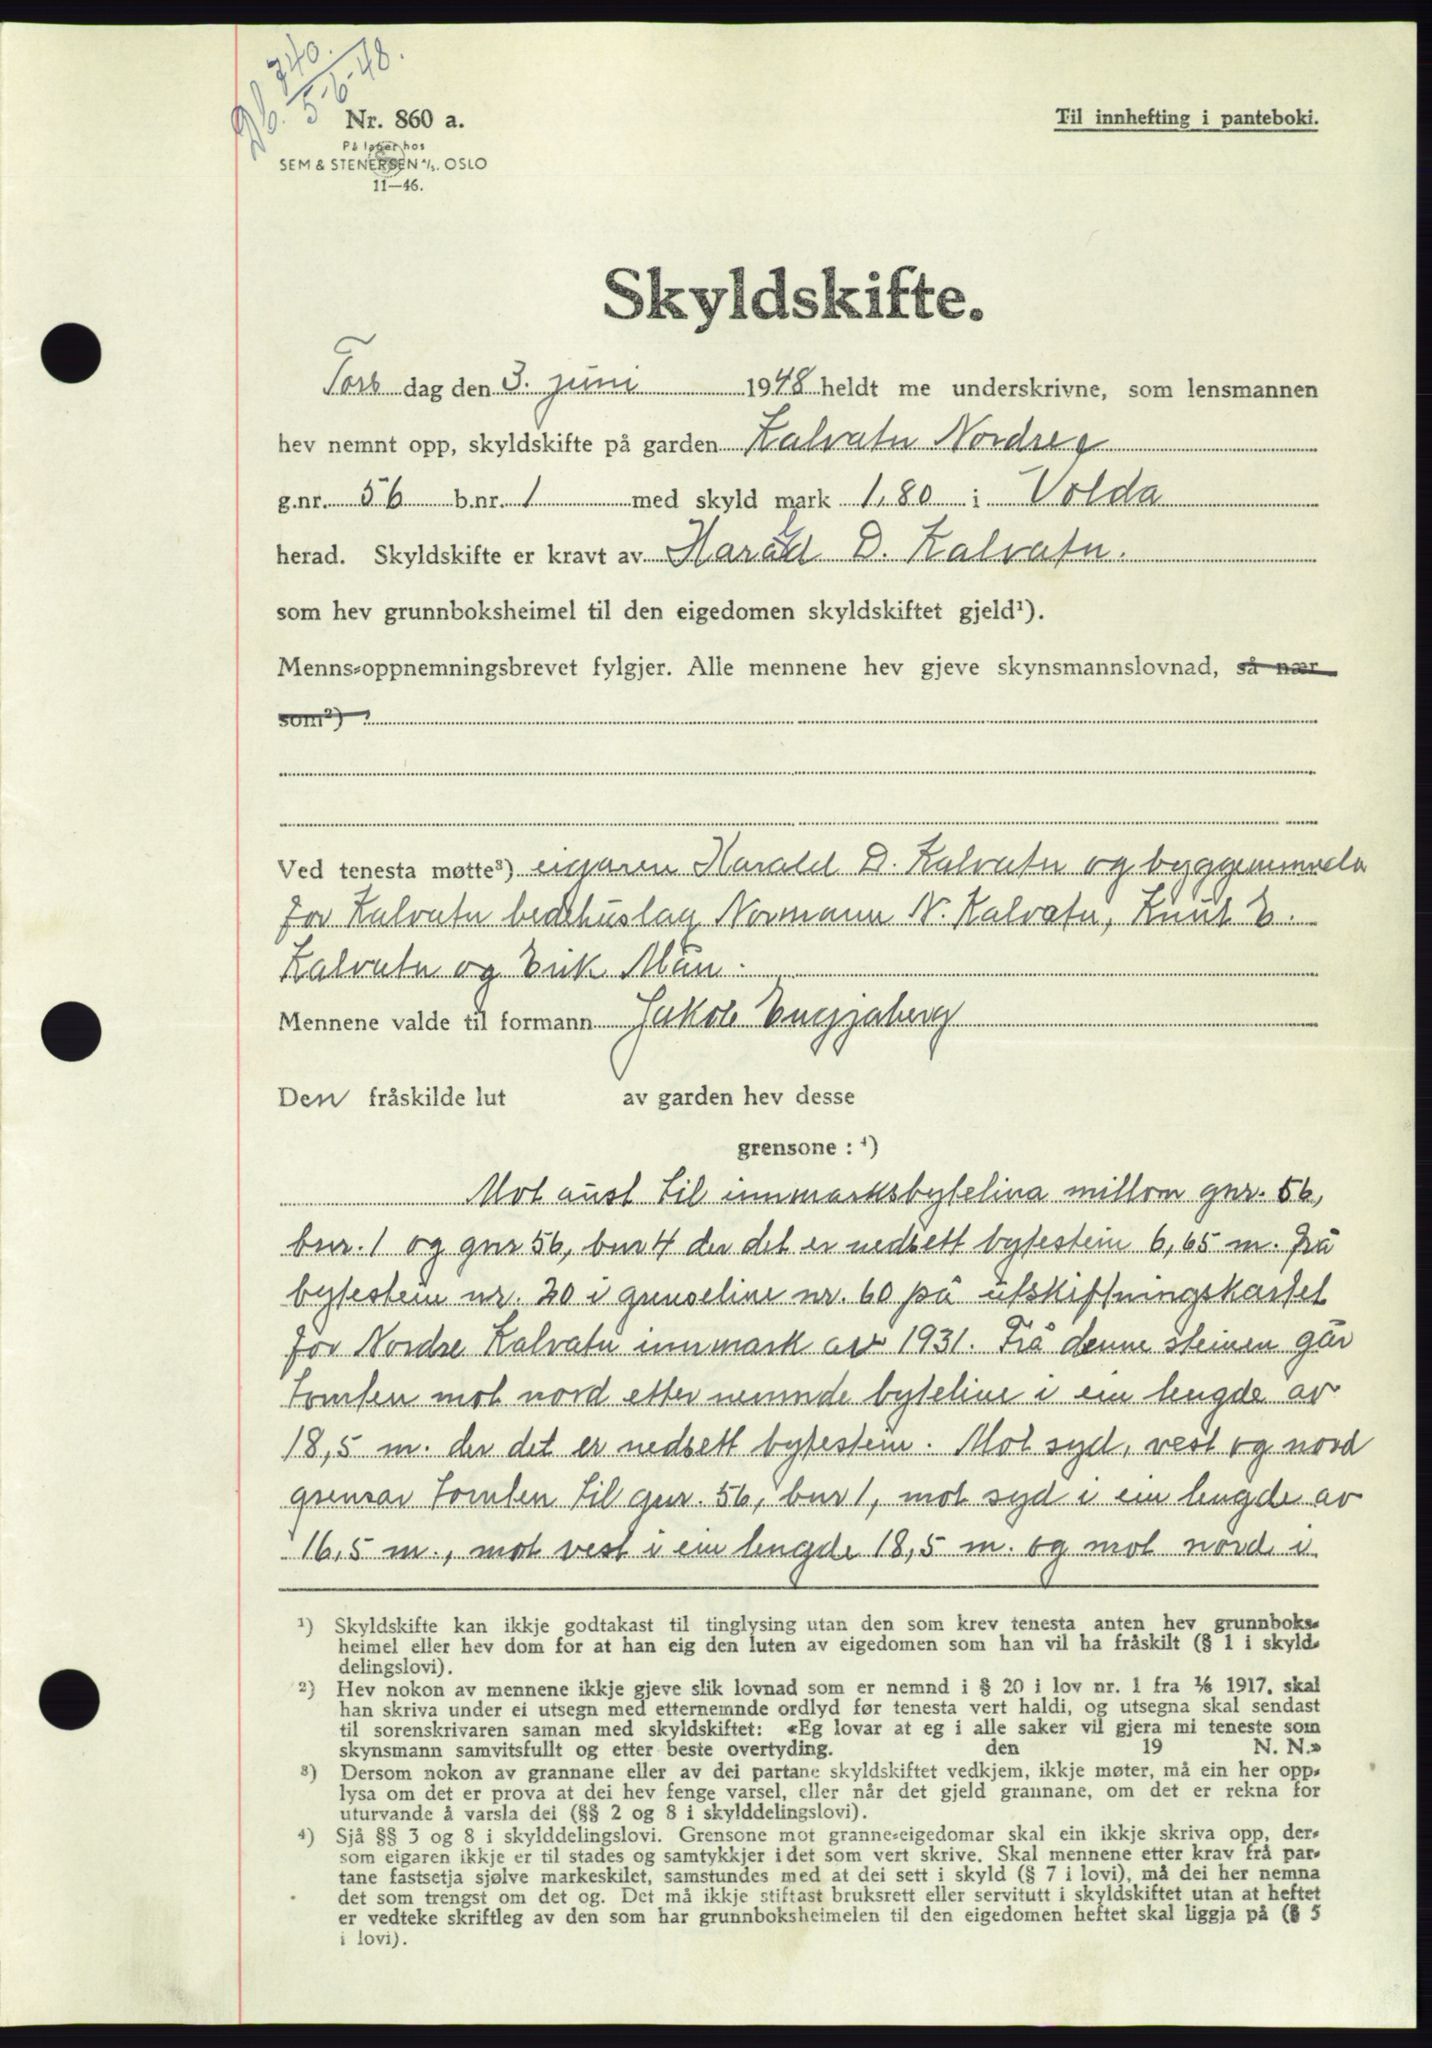 Db. 740.
5-6-48.
Nr. 860 a.
På lager hos
SEM & STENERSEN A/S. OSLO
11—46.
Til innhefting i panteboki.
Skyldskifte.
Tors dag den 3. juni 1948 heldt me underskrivne, som lensmannen
hev nemnt opp, skyldskifte på garden Kalvatn Nordre
g.nr. 56 b.nr. 1 med skyld mark 1,80 i Volda
herad. Skyldskifte er kravt av Harald D. Kalvatn.
som hev grunnboksheimel til den eigedomen skyldskiftet gjeld¹).
Menns-oppnemningsbrevet fylgjer. Alle mennene hev gjeve skynsmannslovnad, så nær
som²) :
Ved tenesta møtte³) eigaren Harald D. Kalvatn og byggemnemnda
for Kalvatn bedehuslag Normann N. Kalvatn, Knut E.
Kalvatn og Erik Mån.
Mennene valde til formann Jakob Engjaberg
Den fråskilde lut av garden hev desse
grensone : ⁴)
Mot aust til innmarksbytelina millom gnr. 56,
bnr. 1 og gnr 56, bnr 4 der det er nedsett bytestein 6,65 m. frå
bytestein nr. 20 i grenseline nr. 60 på utskiftningskartet
for Nordre Kalvatn innmark av 1931. Frå denne steinen går
tomten mot nord etter nemnde byteline i ein lengde av
18,5 m. der det er nedsett bytestein. Mot syd, vest og nord
grensar tomten til gnr. 56, bnr 1, mot syd i ein lengde av
16,5 m., mot vest i ein lengde 18,5 m. og mot nord i
¹) Skyldskifte kan ikkje godtakast til tinglysing utan den som krev tenesta anten hev grunnboks-
heimel eller hev dom for at han eig den luten av eigedomen som han vil ha fråskilt (§ 1 i skyld-
delingslovi).
²) Hev nokon av mennene ikkje gjeve slik lovnad som er nemnd i § 20 i lov nr. 1 fra 1/6 1917, skal
han skriva under ei utsegn med etternemnde ordlyd før tenesta vert haldi, og utsegna skal sendast
til sorenskrivaren saman med skyldskiftet: «Eg lovar at eg i alle saker vil gjera mi teneste som
skynsmann samvitsfullt og etter beste overtyding. den 19 N. N.»
³) Dersom nokon av grannane eller av dei partane skyldskiftet vedkjem, ikkje møter, må ein her opp-
lysa om det er prova at dei hev fenge varsel, eller når det gjeld grannane, om det er rekna for
uturvande å varsla dei (§§ 2 og 8 i skylddelingslovi).
⁴) Sjå §§ 3 og 8 i skylddelingslovi. Grensone mot granne-eigedomar skal ein ikkje skriva opp, der-
som eigaren ikkje er til stades og samtykkjer i det som vert skrive. Skal mennene etter krav frå par-
tane fastsetja sjølve markeskilet, samstundes med at dei sett i skyld (§ 7 i lovi), må dei her nemna
det som trengst om det og. Det må ikkje stiftast bruksrett eller servitutt i skyldskiftet utan at heftet
er vedteke skriftleg av den som har grunnboksheimelen til den eigedomen heftet skal liggja på (§ 5
i lovi).